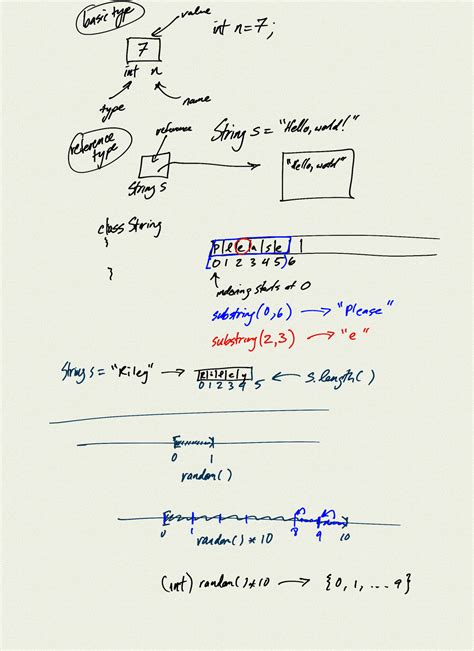 basic type
value
int n = 7;
7
int n
type
name
reference type
reference
String s = "Hello, world!"
"Hello, world"
String s
class String
{
}
P|l|e|a|s|e| |
0 1 2 3 4 5 6
indexing starts at 0
substring(0,6) → "Please"
substring(2,3) → "e"
String s = "Riley" → R|i|l|e|y
0 1 2 3 4 5 ← s.length()
0 1
random()
0 1 8 9 10
random() * 10
(int) random() * 10 → {0, 1, ... 9}